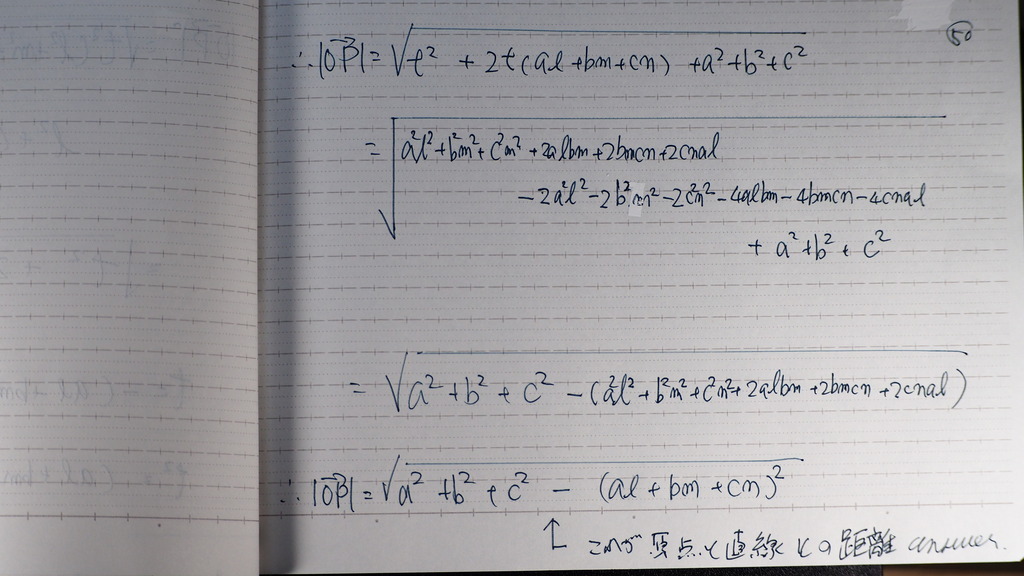 50
∴ |OP→| = √(t² + 2t(al + bm + cn) + a² + b² + c²)
= √(a²l² + b²m² + c²n² + 2albm + 2bmcn + 2cnal
− 2a²l² − 2b²m² − 2c²n² − 4albm − 4bmcn − 4cnal
+ a² + b² + c²)
= √(a² + b² + c² − (a²l² + b²m² + c²n² + 2albm + 2bmcn + 2cnal))
∴ |OP→| = √(a² + b² + c² − (al + bm + cn)²)
↑ これが 原点と直線 との 距離 answer.